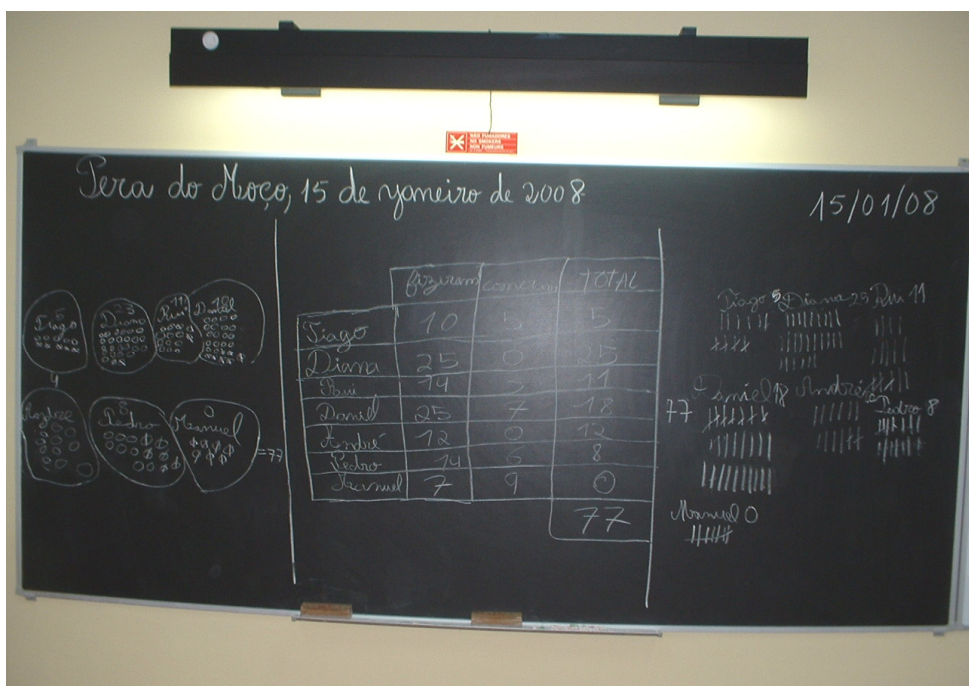 NÃO FUMADORES
NO SMOKERS
NON FUMEURS
Pera do Moço, 15 de janeiro de 2008
15/01/08
5
Tiago
Diana
11
Rui
18
Daniel
8
Pedro
0
Manuel
=77
fizeram comeram TOTAL
Tiago 10 5 5
Diana 25 0 25
Rui 14 3 11
Daniel 25 7 18
André 12 0 12
Pedro 14 6 8
Manuel 7 9 0
77
Tiago 5 Diana 25 Rui 11
77
Daniel 18 André
Pedro 8
Manuel 0